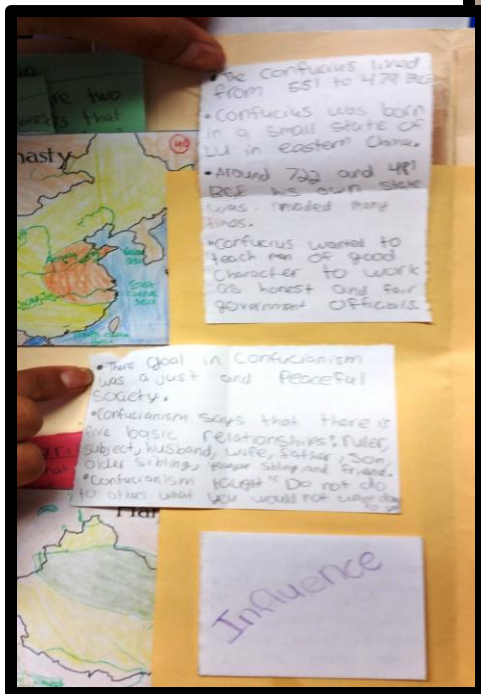 re two
s that
nasty
40
• The Confucius lived
from 551 to 479 BC
• Confucius was born
in a small state of
LU in eastern China.
• Around 722 and 481
BCE his own state
was invaded many
times.
• Confucius wanted to
teach men of good
Character to work
as honest and fair
government officials
East
• There goal in Confucianism
was a just and Peaceful
society.
• Confucianism says that there is
five basic relationships; ruler,
subject, husband, wife, father, son,
older sibling, younger sibling and friend.
• Confucianism taught "Do not do
to others what you would not want done
to you
Influence